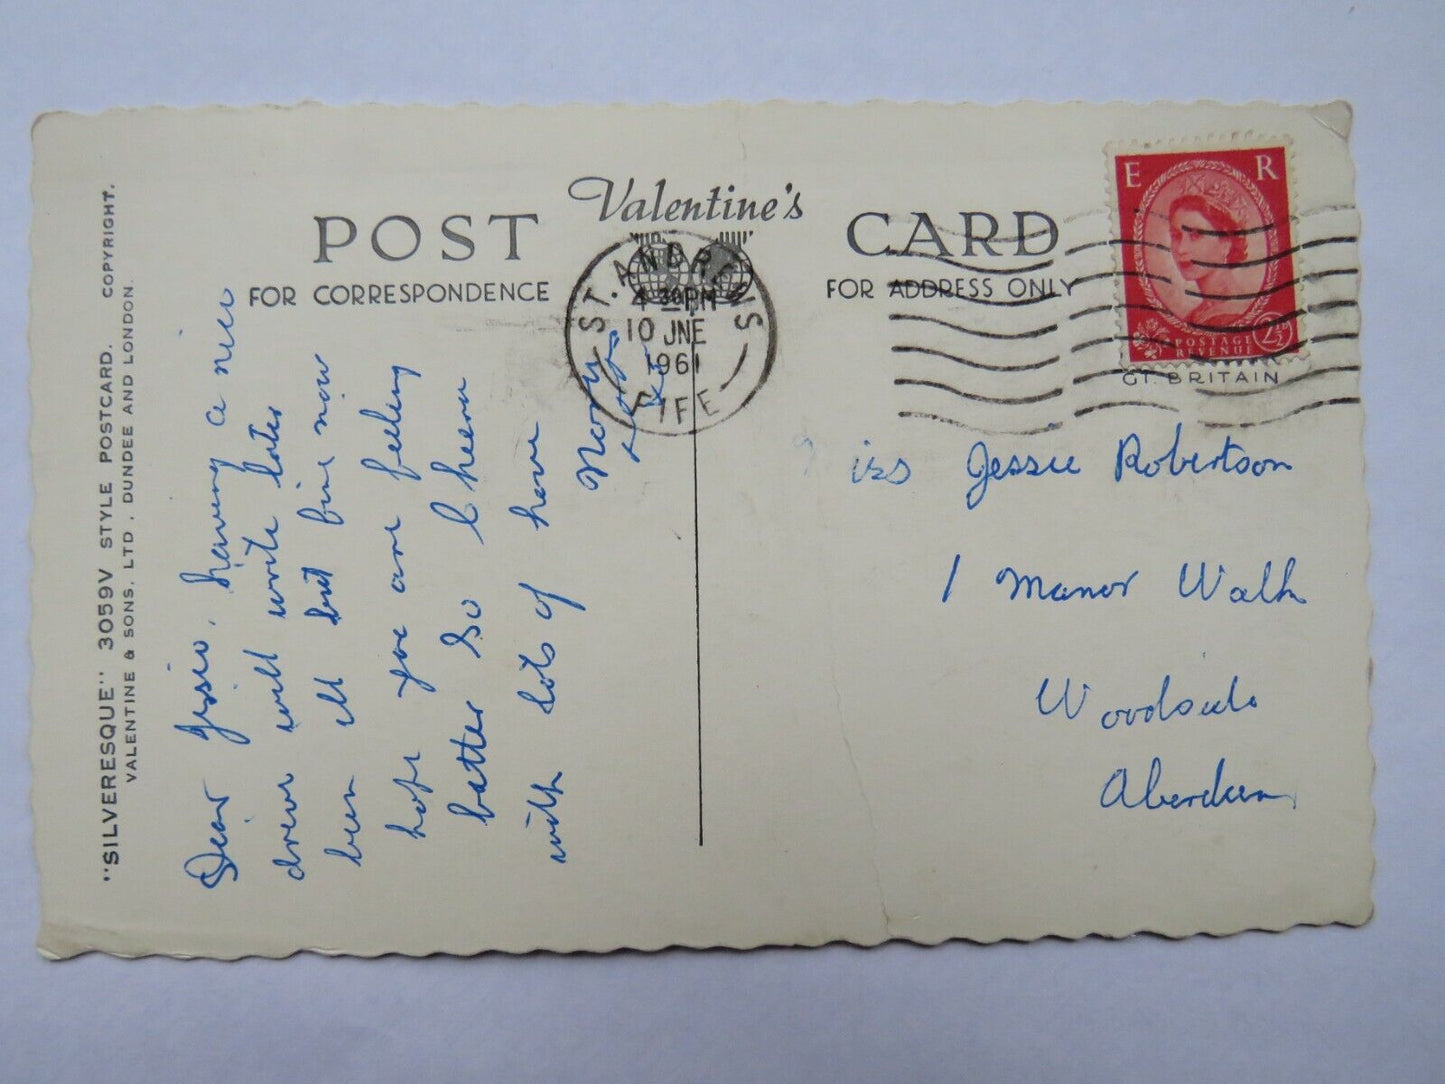 "SILVERESQUE" 3059V STYLE POSTCARD. COPYRIGHT.
VALENTINE & SONS, LTD., DUNDEE AND LONDON.
POST Valentine's CARD
FOR CORRESPONDENCE
FOR ADDRESS ONLY
E R
POSTAGE
REVENUE
2½D
GT. BRITAIN
ST. ANDREWS
4 30PM
10 JNE
1961
FIFE
Dear Jessie, having a nice
drive will write later
been ill but fine now
hope you are feeling
better So Cheerio
with lots of love
from
xxx
iss Jessie Robertson
1 Manor Walk
Woodside
Aberdeen